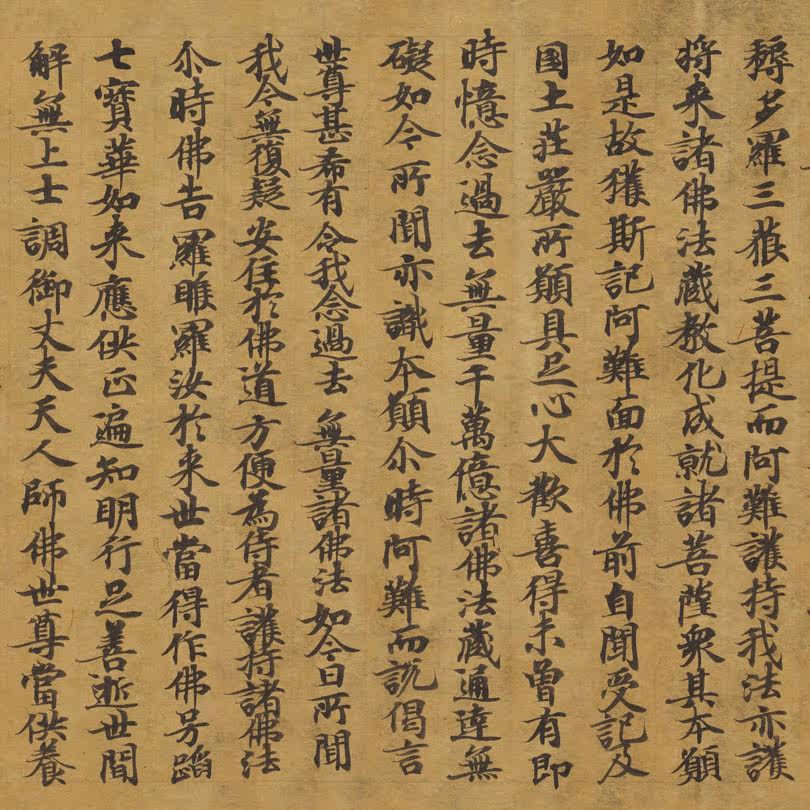 耨多羅三藐三菩提而阿難護持我法亦護
将来諸佛法藏教化成就諸菩薩衆其本願
如是故獲斯記阿難面於佛前自聞受記及
國土莊嚴所願具足心大歡喜得未曾有即
時憶念過去無量千萬億諸佛法藏通達無
礙如今所聞亦識本願尒時阿難而說偈言
世尊甚希有 令我念過去 無量諸佛法 如今日所聞
我今無復疑 安住於佛道 方便為侍者 護持諸佛法
尒時佛告羅睺羅汝於来世當得作佛号蹈
七寶華如来應供正遍知明行足善逝世間
解無上士調御丈夫天人師佛世尊當供養